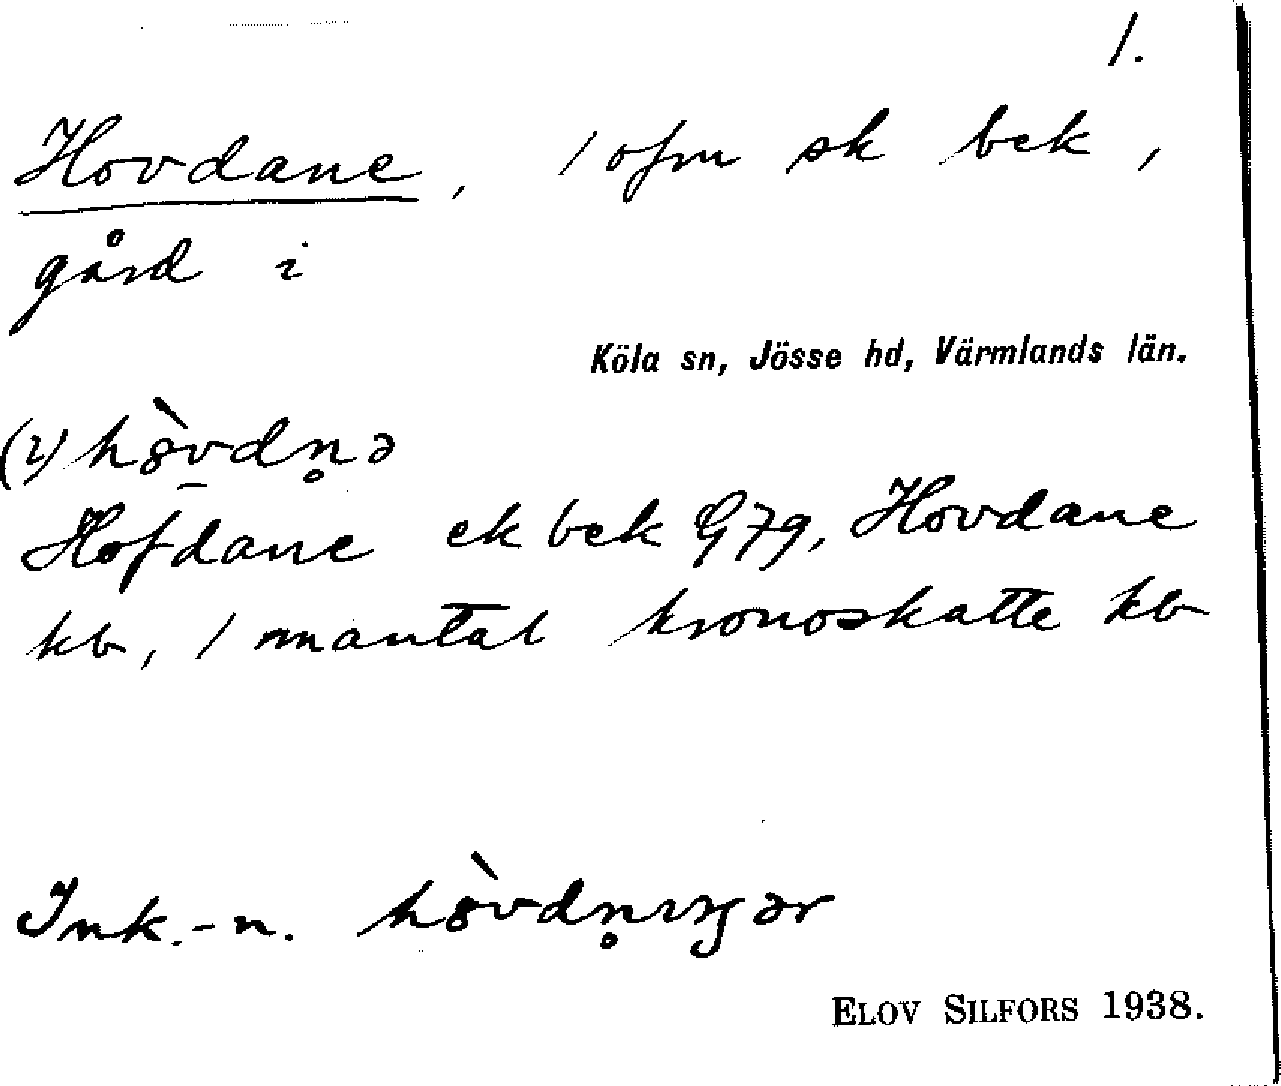 1.
Hovdane, 1 ofm sk bek,
gård i
Köla sn, Jösse hd, Värmlands län.
(i) hòvdn̥ə
Hofdane ek bek G7g, Hovdane
kb, 1 mantal kronoskatte kb
Ink.-n. hòvdn̥ıŋər
ELOV SILFORS 1938.